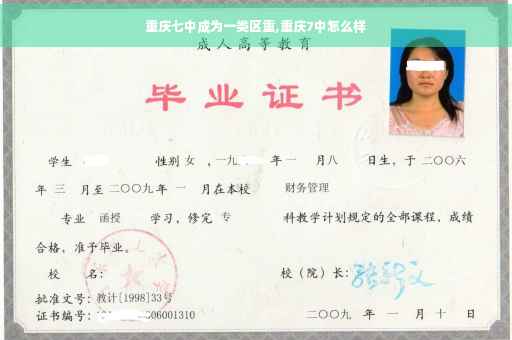 重庆七中成为一类区重,重庆7中怎么样
成人高等教育
毕业证书
学生 性别 女 ,一九 年 一 月 八 日生,于二〇〇六
年 三 月至二〇〇九年 一 月在本校 财务管理
专业 函授 学习,修完 专 科教学计划规定的全部课程,成绩
合格,准予毕业。
校 名: 校(院)长:
批准文号:教计[1998]33号
证书编号: 06001310 二〇〇九 年 一 月 十 日